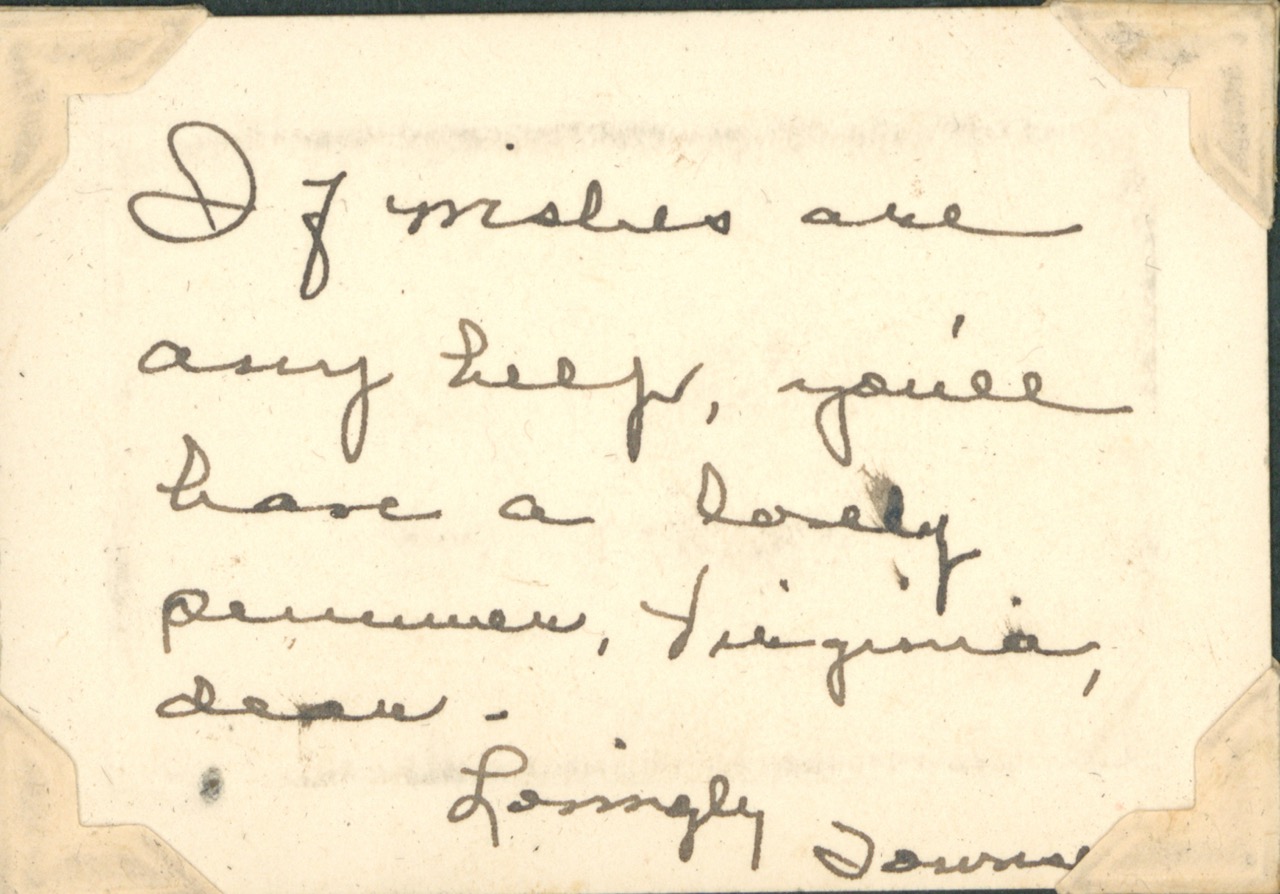 If wishes are
any help, you'll
have a lovely
summer, Virginia,
dear -
Lovingly